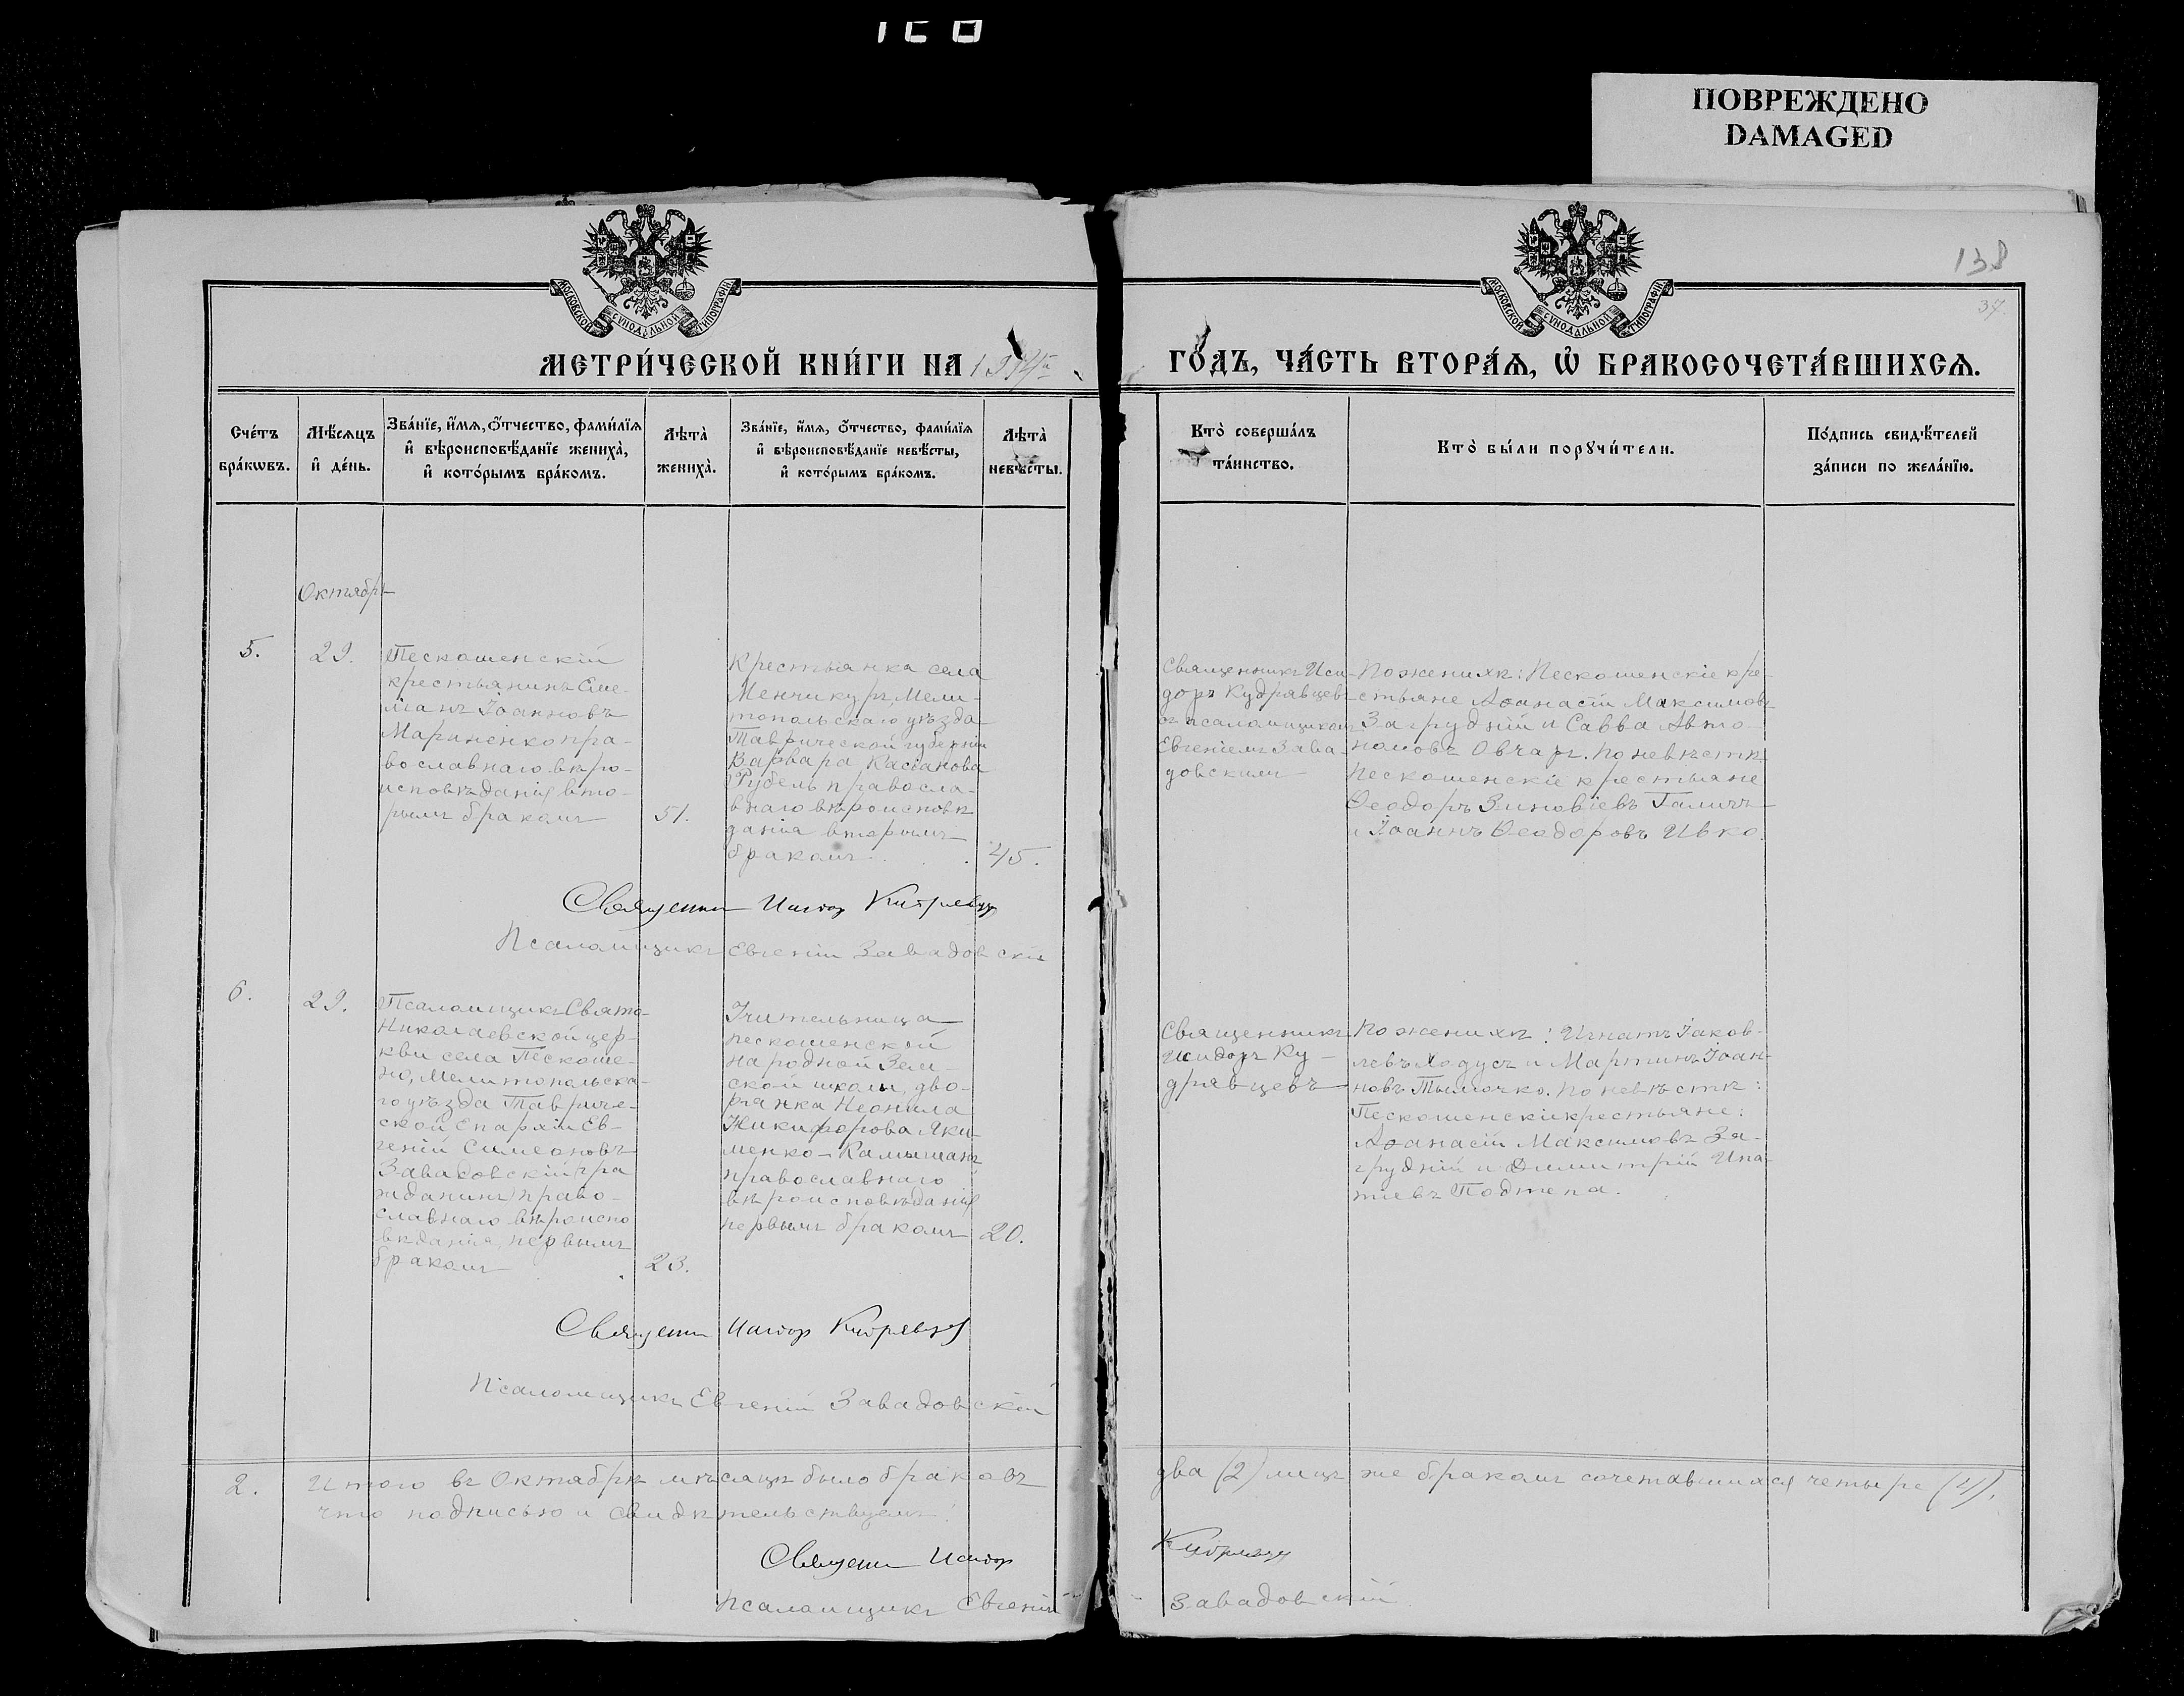 ПОВРЕЖДЕНО
DAMAGED
138
37.
МОСКОВСКОЙ СѴНОДАЛЬНОЙ ТИПОГРАФІИ
МОСКОВСКОЙ СѴНОДАЛЬНОЙ ТИПОГРАФІИ
МЕТРИ́ЧЕСКОЙ КНИ́ГИ НА
ГО́ДЪ, ЧА́СТЬ ВТОРА́Ѧ, Ѽ БРАКОСОЧЕТА́ВШИХСѦ.
Сче́тъ
бра́кѡвъ.
Мѣ́сѧцъ
и҆ де́нь.
Зва́нїе, и҆́мѧ, ѻ҆́тчество, фами́лїѧ
и҆ вѣроисповѣ́данїе жениха̀,
и҆ кото́рымъ бра́комъ.
Лѣта̀
жениха̀.
Зва́нїе, и҆́мѧ, ѻ҆́тчество, фами́лїѧ
и҆ вѣроисповѣ́данїе невѣ́сты,
и҆ кото́рымъ бра́комъ.
Лѣта̀
невѣ́сты.
Кто̀ соверша́лъ
та́инство.
Кто̀ бы́ли порꙋчи́тели.
По́дпись свидѣ́телей
за́писи по жела́нїю.
Октябрь
5.
29.
Пескошенскій
крестьянинъ Еме-
ліанъ Іоанновъ
Мариненко пра-
вославнаго вѣро-
исповѣданія вто-
рымъ бракомъ
51.
Крестьянка села
Менчикуръ, Мели-
топольскаго уѣзда
Таврической губерніи
Варвара Касіанова
Рубель правосла-
внаго вѣроисповѣ
данія вторымъ
бракомъ.
45.
Священникъ Иси-
доръ Кудрявцевъ
съ псаломщикомъ
Евгеніемъ Зава-
довскимъ
По женихѣ: Пескошенскіе кре-
стьяне Аѳанасій Максимовъ
Загрудній и Савва Авто-
номовъ Овчар. По невѣстѣ
Пескошенскіе крестьяне
Ѳеодоръ Зиновіевъ Галичъ
и Іоаннъ Ѳеодоровъ Ивко.
Священникъ Исидоръ Кудрявцевъ
Псаломщикъ Евгеній Завадовскій
6.
29.
Псаломщикъ Свято-
Николаевской цер-
кви села Пескоше-
но, Мелитопольска-
го уѣзда Тавриче-
ской Епархіи Ев-
геній Симеоновъ
Завадовскій гра
жданинъ право-
славнаго вѣроиспо
вѣданія, первымъ
бракомъ
23.
Учительница
пескошенской
народной Зем-
ской школы, дво-
рянка Неонила
Никифорова Яки-
менко-Камышанъ
православнаго
вѣроисповѣданія
первымъ бракомъ
20.
Священникъ
Исидоръ Ку-
дрявцевъ
По женихѣ: Игнатъ Іаков-
левъ Ходусъ и Мартинъ Іоан-
новъ Тымочко. По невѣстѣ:
Пескошенскіе крестьяне:
Аѳанасій Максимовъ За-
грудній и Димитрій Ипа-
тіевъ Подтепа.
Священникъ Исидоръ Кудрявцевъ
Псаломщикъ Евгеній Завадовскій
2.
Итого въ Октябрѣ мѣсяцѣ было браковъ два (2) лицъ же бракомъ сочетавшихся четыре (4),
что подписью и свидѣтельствуемъ:
Священникъ Исидоръ Кудрявцевъ
Псаломщикъ Евгеній Завадовскій